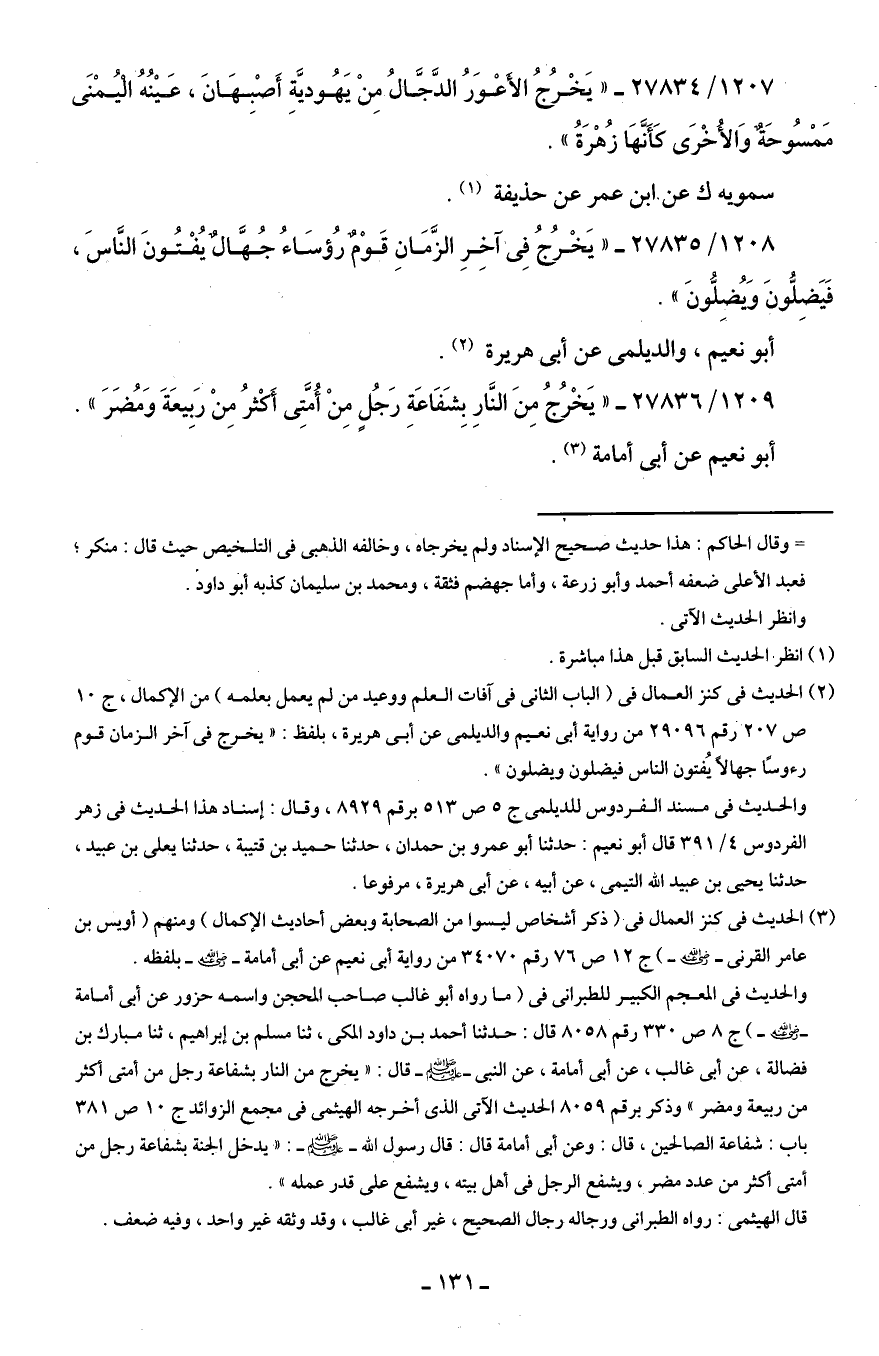 ١٢٠٧/ ٢٧٨٣٤ ـ « يَخْرُجُ الأَعْوَرُ الدَّجَّالُ مِنْ يَهُودِيَّةِ أَصْبِهَانَ ، عَيْنُهُ الْيُمْنَى
مَمْسُوحَةٌ وَالأُخْرَى كَأَنَّهَا زُهْرَةُ » .
سمويه ك عن ابن عمر عن حذيفة (١) .
١٢٠٨/ ٢٧٨٣٥ ـ « يَخْرُجُ فِى آخِرِ الزَّمَانِ قَوْمٌ رُؤَسَاءُ جُهَّالٌ يُفْتُونَ النَّاسَ ،
فَيَضِلُّونَ وَيُضِلُّونَ » .
أبو نعيم ، والديلمى عن أبى هريرة (٢) .
١٢٠٩/ ٢٧٨٣٦ ـ « يَخْرُجُ مِنَ النَّارِ بِشَفَاعَةِ رَجُلٍ مِنْ أُمَّتِى أَكْثرُ مِنْ رَبِيعَةَ وَمُضَرَ » .
أبو نعيم عن أبى أمامة (٣) .
= وقال الحاكم : هذا حديث صحيح الإسناد ولم يخرجاه ، وخالفه الذهبى فى التلخيص حيث قال : منكر ؛
فعبد الأعلى ضعفه أحمد وأبو زرعة ، وأما جهضم فثقة ، ومحمد بن سليمان كذبه أبو داود .
وانظر الحديث الآتى .
(١) انظر الحديث السابق قبل هذا مباشرة .
(٢) الحديث فى كنز العمال فى ( الباب الثانى فى آفات العلم ووعيد من لم يعمل بعلمه ) من الإكمال ، ج ١٠
ص ٢٠٧ رقم ٢٩٠٩٦ من رواية أبى نعيم والديلمى عن أبى هريرة ، بلفظ : « يخرج فى آخر الزمان قوم
رءوسًا جهالاً يُفتون الناس فيضلون ويضلون » .
والحديث فى مسند الفردوس للديلمى ج ٥ ص ٥١٣ برقم ٨٩٢٩ ، وقال : إسناد هذا الحديث فى زهر
الفردوس ٤/ ٣٩١ قال أبو نعيم : حدثنا أبو عمرو بن حمدان ، حدثنا حميد بن قتيبة ، حدثنا يعلى بن عبيد ،
حدثنا يحيى بن عبيد الله التيمى ، عن أبيه ، عن أبى هريرة ، مرفوعا .
(٣) الحديث فى كنز العمال فى ( ذكر أشخاص ليسوا من الصحابة وبعض أحاديث الإكمال ) ومنهم ( أويس بن
عامر القرنى ـ رضي الله عنه ـ ) ج ١٢ ص ٧٦ رقم ٣٤٠٧٠ من رواية أبى نعيم عن أبى أمامة ـ رضي الله عنه ـ بلفظه .
والحديث فى المعجم الكبير للطبرانى فى ( ما رواه أبو غالب صاحب المحجن واسمه حزور عن أبى أمامة
ـ رضي الله عنه ـ ) ج ٨ ص ٣٣٠ رقم ٨٠٥٨ قال : حدثنا أحمد بن داود المكى ، ثنا مسلم بن إبراهيم ، ثنا مبارك بن
فضالة ، عن أبى غالب ، عن أبى أمامة ، عن النبى ـ ﷺ ـ قال : « يخرج من النار بشفاعة رجل من أمتى أكثر
من ربيعة ومضر » وذكر برقم ٨٠٥٩ الحديث الآتى الذى أخرجه الهيثمى فى مجمع الزوائد ج ١٠ ص ٣٨١
باب : شفاعة الصالحين ، قال : وعن أبى أمامة قال : قال رسول الله ـ ﷺ ـ : « يدخل الجنة بشفاعة رجل من
أمتى أكثر من عدد مضر ، ويشفع الرجل فى أهل بيته ، ويشفع على قدر عمله » .
قال الهيثمى : رواه الطبرانى ورجاله رجال الصحيح ، غير أبى غالب ، وقد وثقه غير واحد ، وفيه ضعف .
ـ ١٣١ ـ